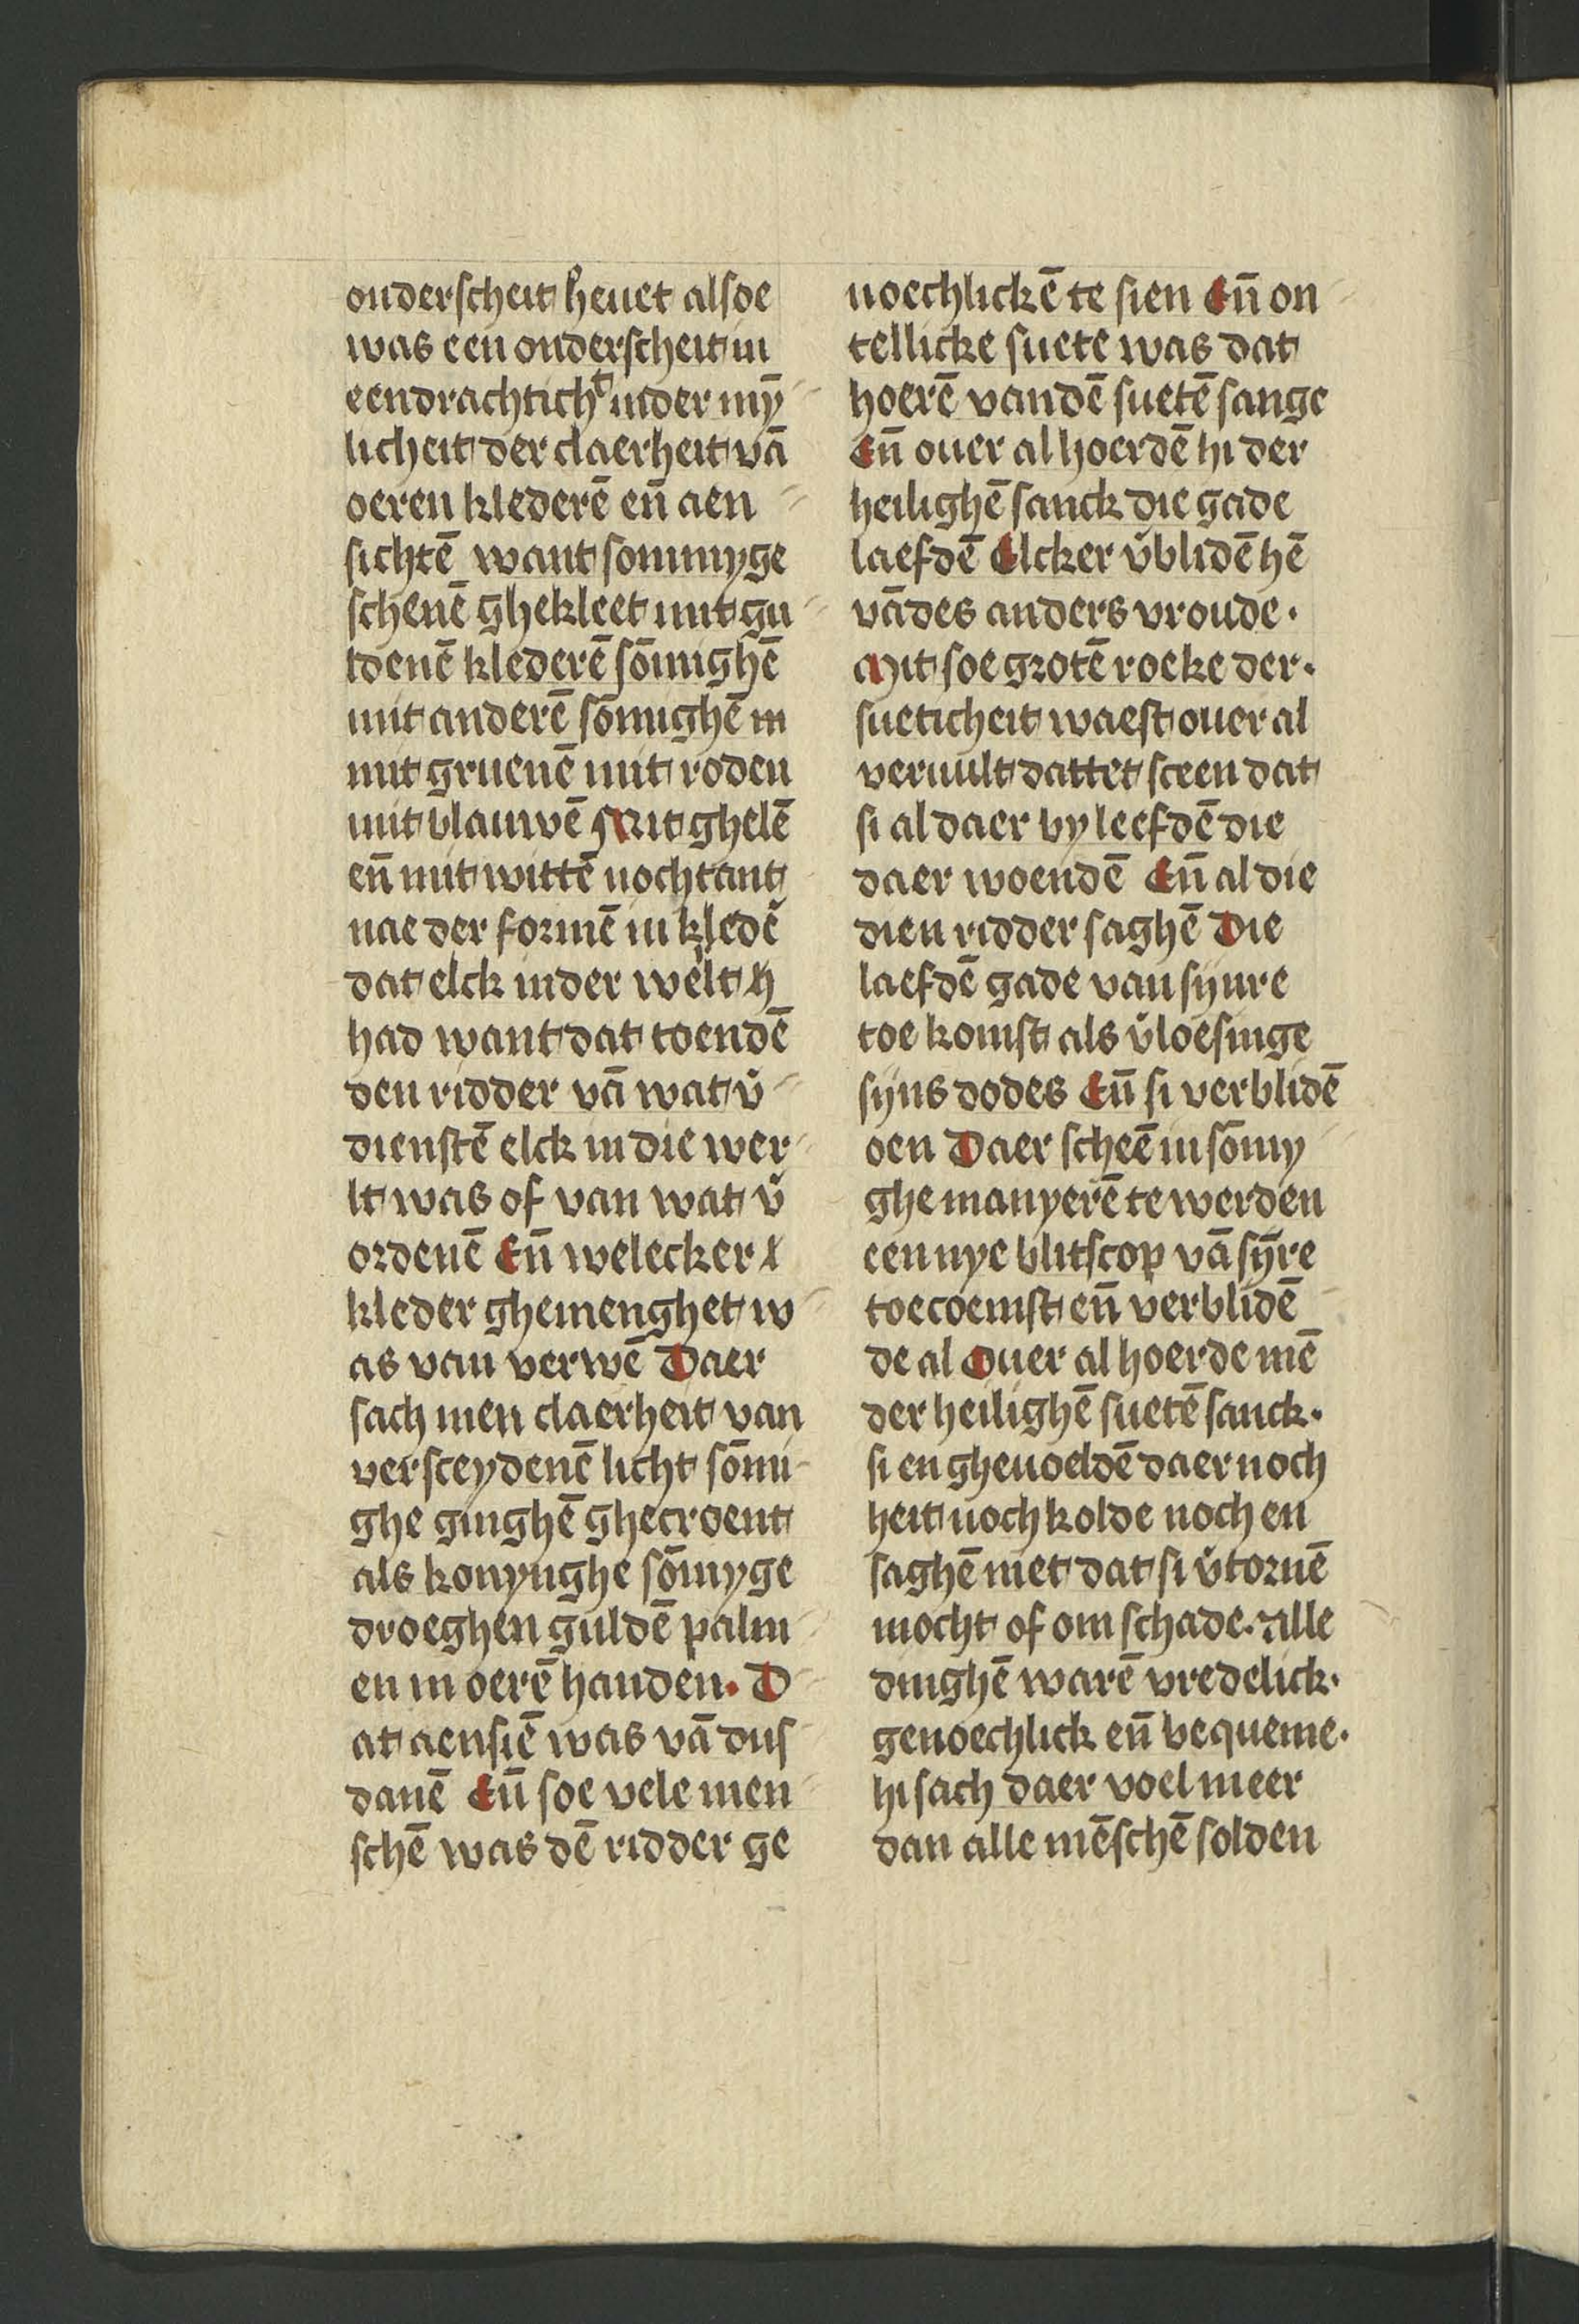 onderscheit heuet alsoe
was een onderscheit in
eendrachtichᵗ inder mȳ
licheit der claerheit vā
oeren klederē eñ aen
sichtē want sommyge
schenē ghekleet mit gu
ldenē klederē sōmighē
mit anderē sōmighē in
mit gruenē mit roden
mit blauwē Mit ghelē
eñ mit wittē nochtant
nae der formē in kledē
dat elck inder we̛lt h
had want dat toendē
den ridder vā wat v̛
dienstē elck in die wer
lt was of van wat v̛
ordenē Eñ welecker l
kleder ghemenghet w
as van verwē Daer
sach men claerheit van
versceydenē licht sōmi
ghe ginghē ghecroent
als konynghe sōmyge
droeghen guldē palm
en in oerē handen. D
at aensiē was vā dus
danē Eñ soe vele men
schē was dē ridder ge
noechlickē te sien Eñ on
tellicke suete was dat
hoerē vandē suetē sange
Eñ ouer al hoerdē hi der
heilighē sanck die gade
laefdē Elcker v̛blidē hē
vādes anders vroude.
Mit soe grotē roeke der.
sueticheit waest ouer al
veruult dattet sceen dat
si al daer by leefdē die
daer woendē Eñ al die
dien ridder saghē Die
laefdē gade van synre
toe komst als v̛loesinge
syns dodes Eñ si verblidē
oen Daer scheē in sōmy
ghe manyerē te werden
een nye blitscop vā sȳre
toecoemst eñ verblidē
de al Ouer al hoerde mē
der heilighē suetē sanck.
si en gheuoeldē daer noch
heit noch kolde noch en
saghē niet dat si v̛tornē
mocht of om schade. Alle
dinghē warē vredelick.
genoechlick eñ bequeme.
hi sach daer voel meer
dan alle mēschē solden